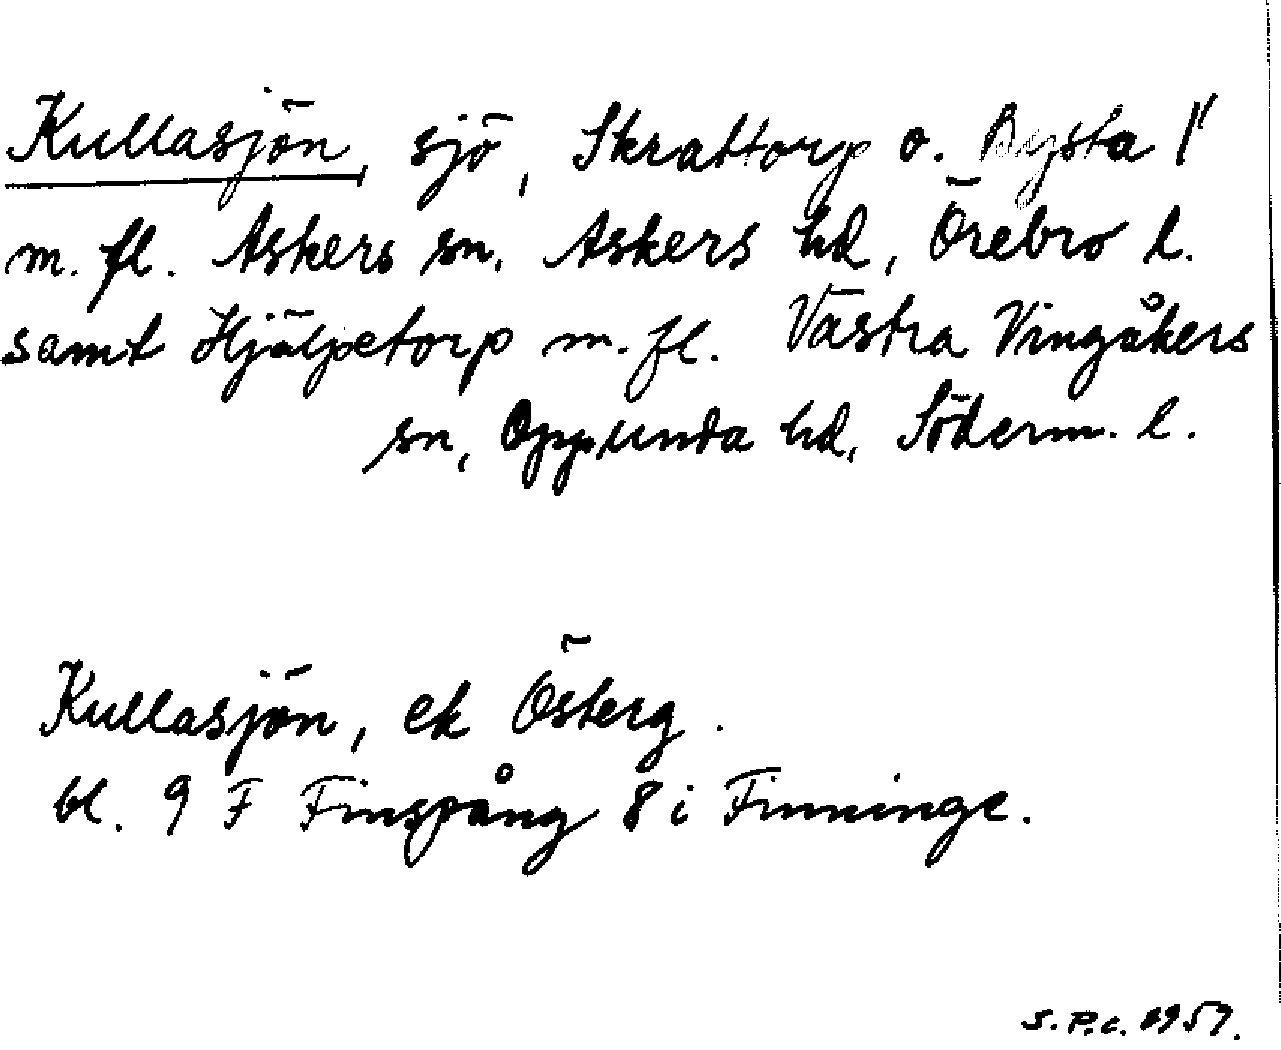 Kullasjön, sjö, Skrattorp o. Bysta 1/1
m. fl. Askers sn. Askers hd, Örebro l.
samt Hjälpetorp m. fl. Västra Vingåkers
sn, Oppunda hd, Söderm. l.
Kullasjön, ek Österg.
bl. 9 F Finspång 8 i Finninge.
S.P.c. 1957.